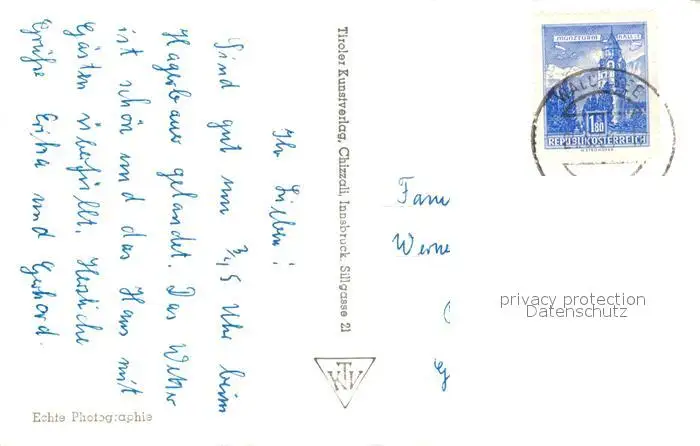 Ihr Lieben!
Sind gut um ¾5 Uhr beim
Hagerbauer gelandet. Das Wetter
ist schön und das Haus mit
Gästen überfüllt. Herzliche
Grüße Erika und Gerhard.
Echte Photographie
Tiroler Kunstverlag, Chizzali, Innsbruck, Sillgasse 21
KTV
MÜNZTURM HALL i. T.
1.80
REPUBLIK ÖSTERREICH
Fam
Werne
privacy protection
Datenschutz